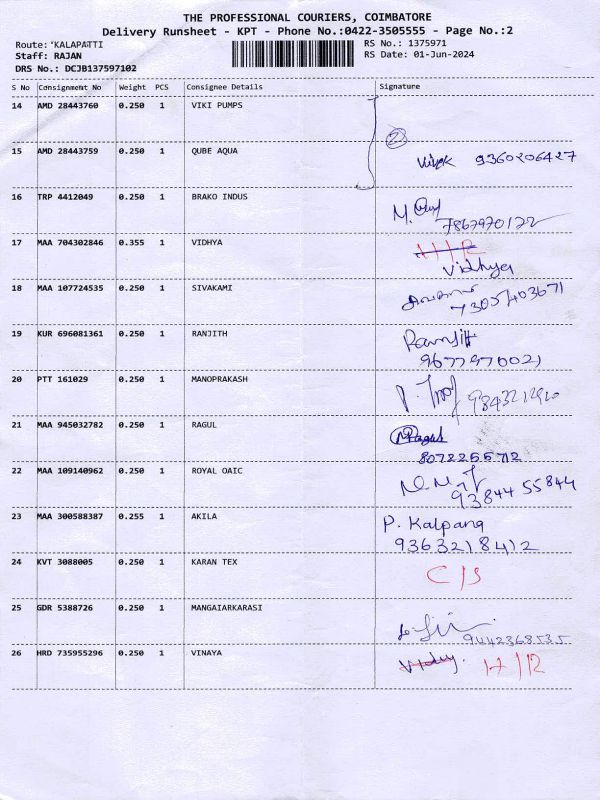 THE PROFESSIONAL COURIERS, COIMBATORE
Delivery Runsheet - KPT - Phone No.:0422-3505555 - Page No.:2
Route: KALAPATTI
RS No.: 1375971
Staff: RAJAN
RS Date: 01-Jun-2024
DRS No.: DCJB137597102
S No Consignment No Weight PCS Consignee Details Signature
14 AMD 28443760 0.250 1 VIKI PUMPS
2
15 AMD 28443759 0.250 1 QUBE AQUA
9360206427
16 TRP 4412049 0.250 1 BRAKO INDUS
7867970122
17 MAA 704302846 0.355 1 VIDHYA
Vidhya
18 MAA 107724535 0.250 1 SIVAKAMI
7305403671
19 KUR 696081361 0.250 1 RANJITH
Ranjith
9677970021
20 PTT 161029 0.250 1 MANOPRAKASH
21 MAA 945032782 0.250 1 RAGUL
Ragul
8072255712
22 MAA 109140962 0.250 1 ROYAL OAIC
93844 55844
23 MAA 300588387 0.255 1 AKILA
P. Kalpana
9363218412
24 KVT 3088005 0.250 1 KARAN TEX
C/S
25 GDR 5388726 0.250 1 MANGAIARKARASI
9442368535
26 HRD 735955296 0.250 1 VINAYA